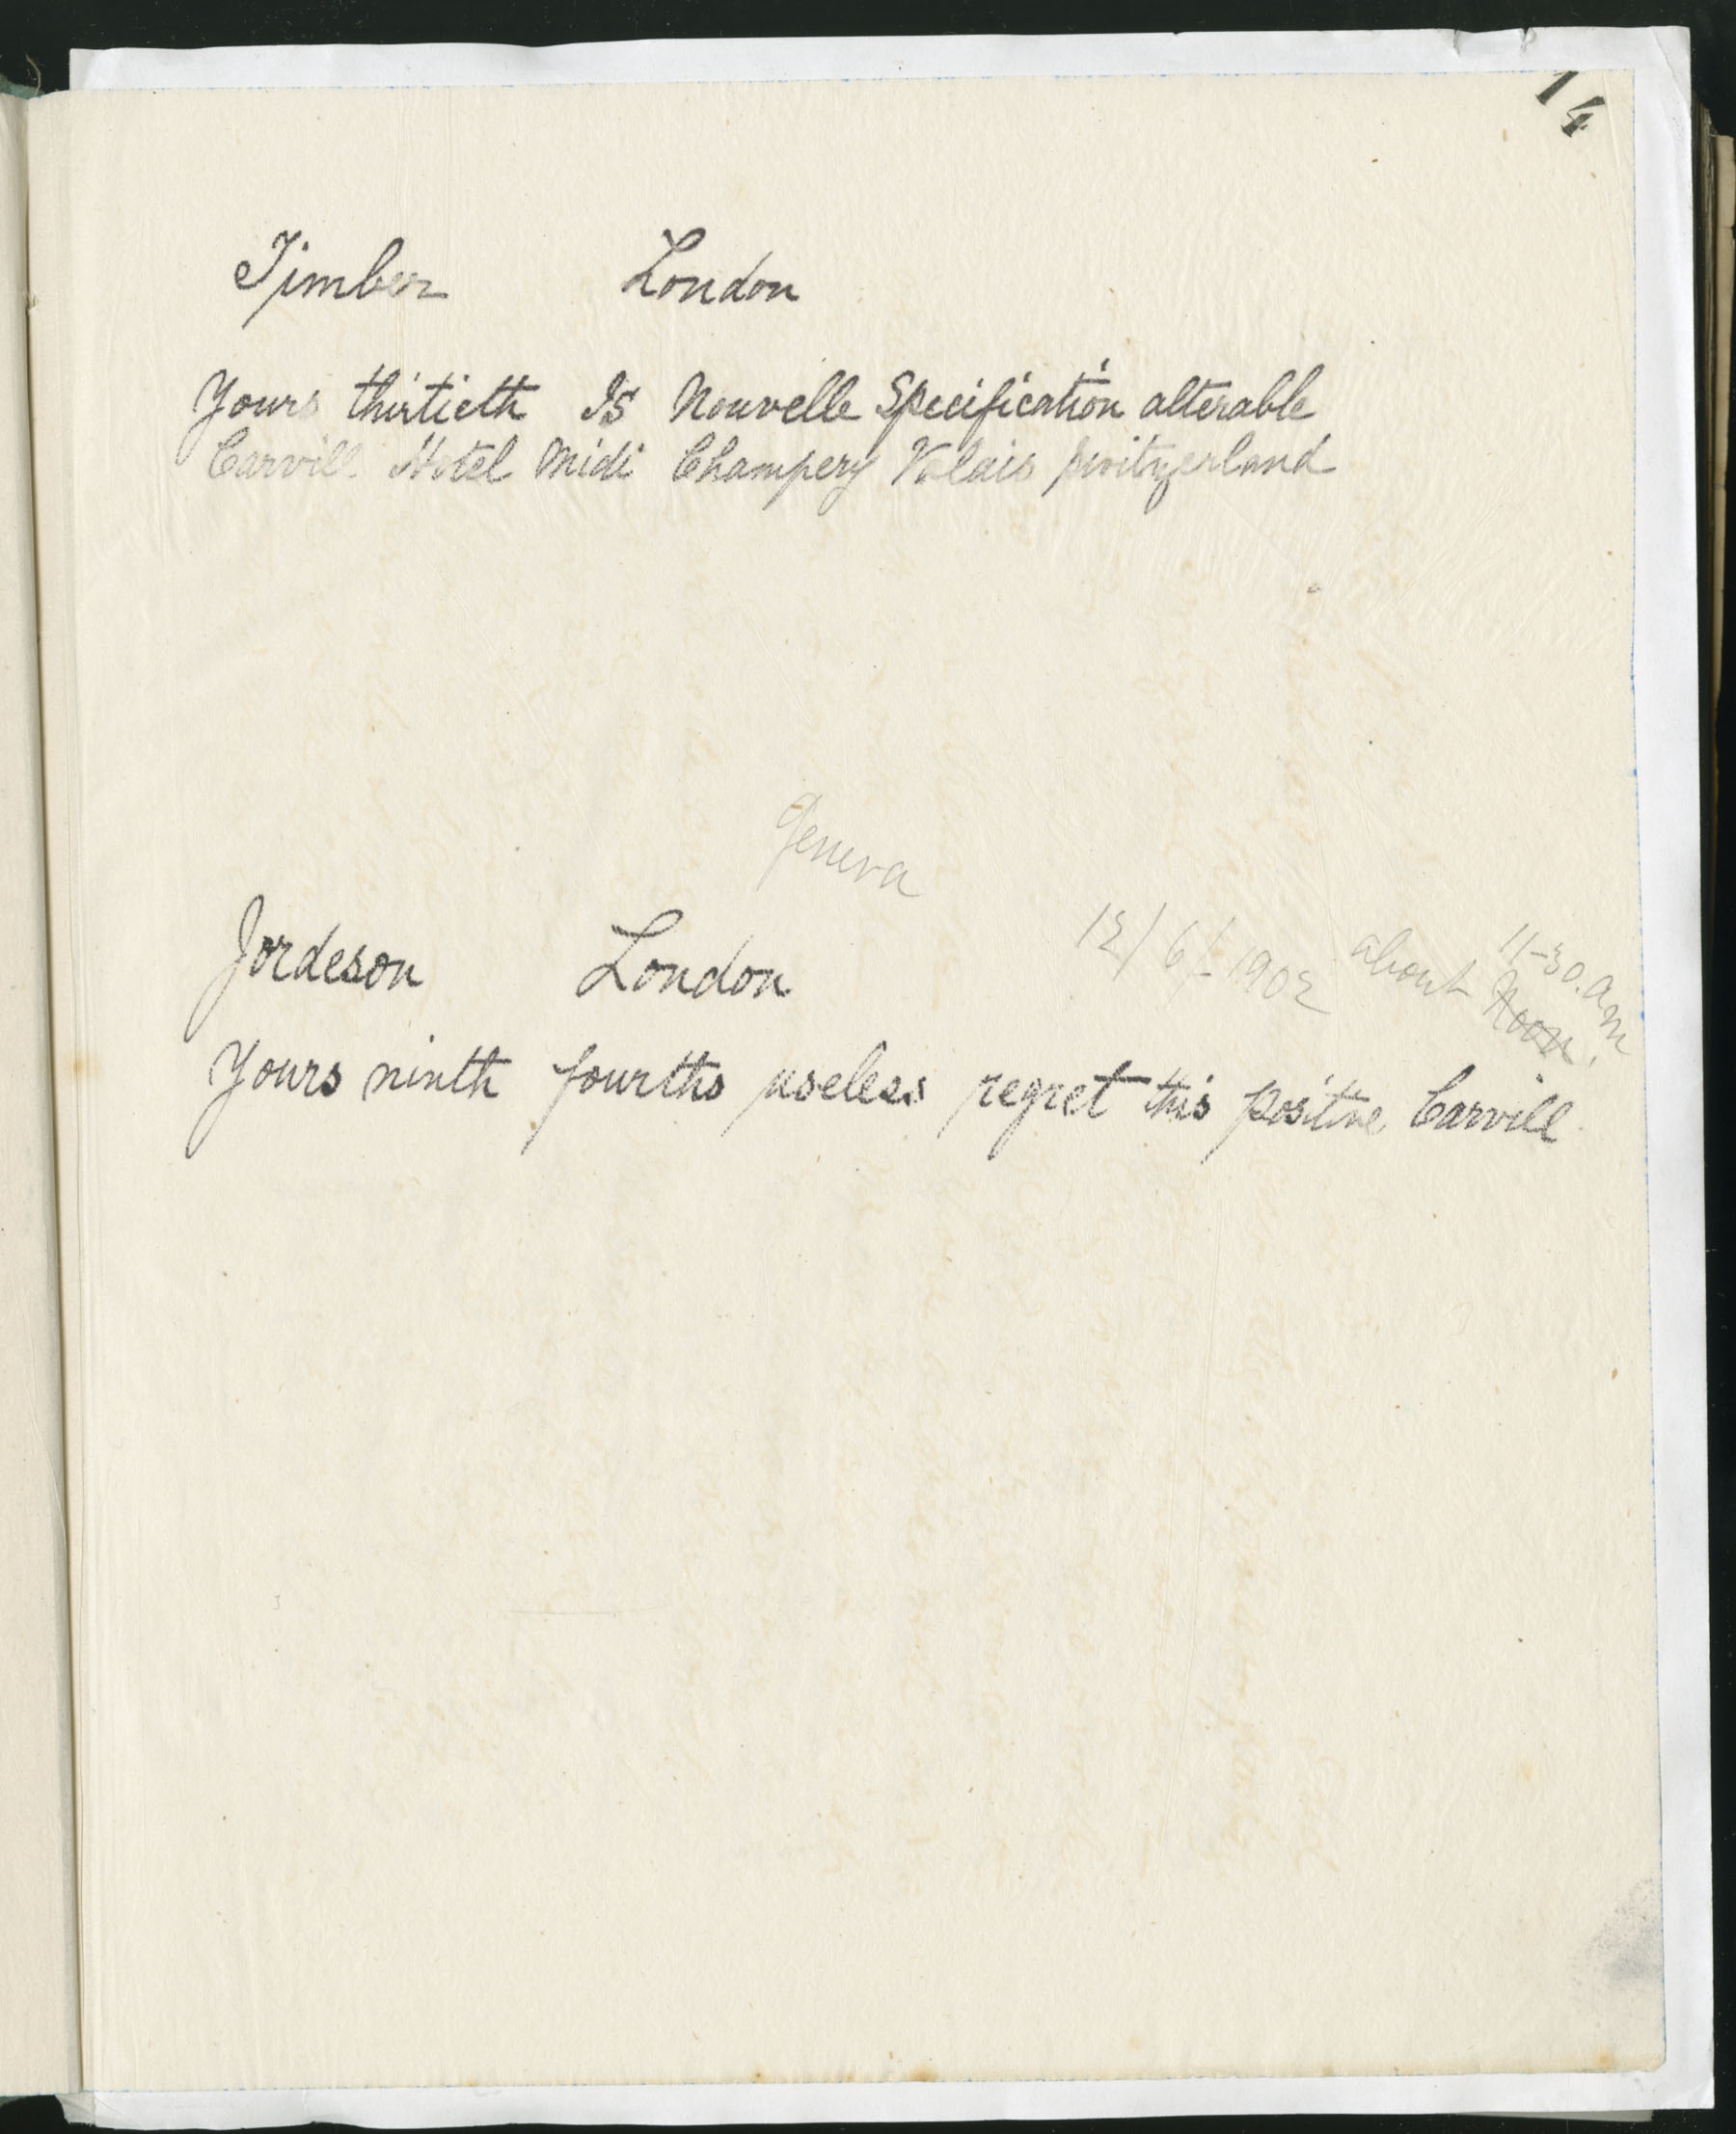 14
Timber London
Yours thirtieth Is Nouvelle Specification alterable
Carvill Hotel Midi Champery Valais Switzerland
Geneva
12/6/-1902 about 11-30.am
Noon.
Jordeson London
Yours ninth fourths useless regret this positive Carvill